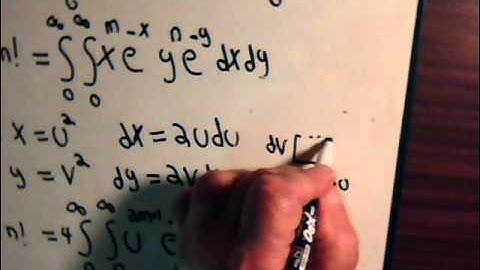 n! = ∫₀^∞ ∫₀^∞ x^m e^-x y^n e^-y dx dy
x = u² dx = 2u du dv [
y = v² dy = 2v
n! = 4 ∫₀^∞ ∫₀^∞ u e